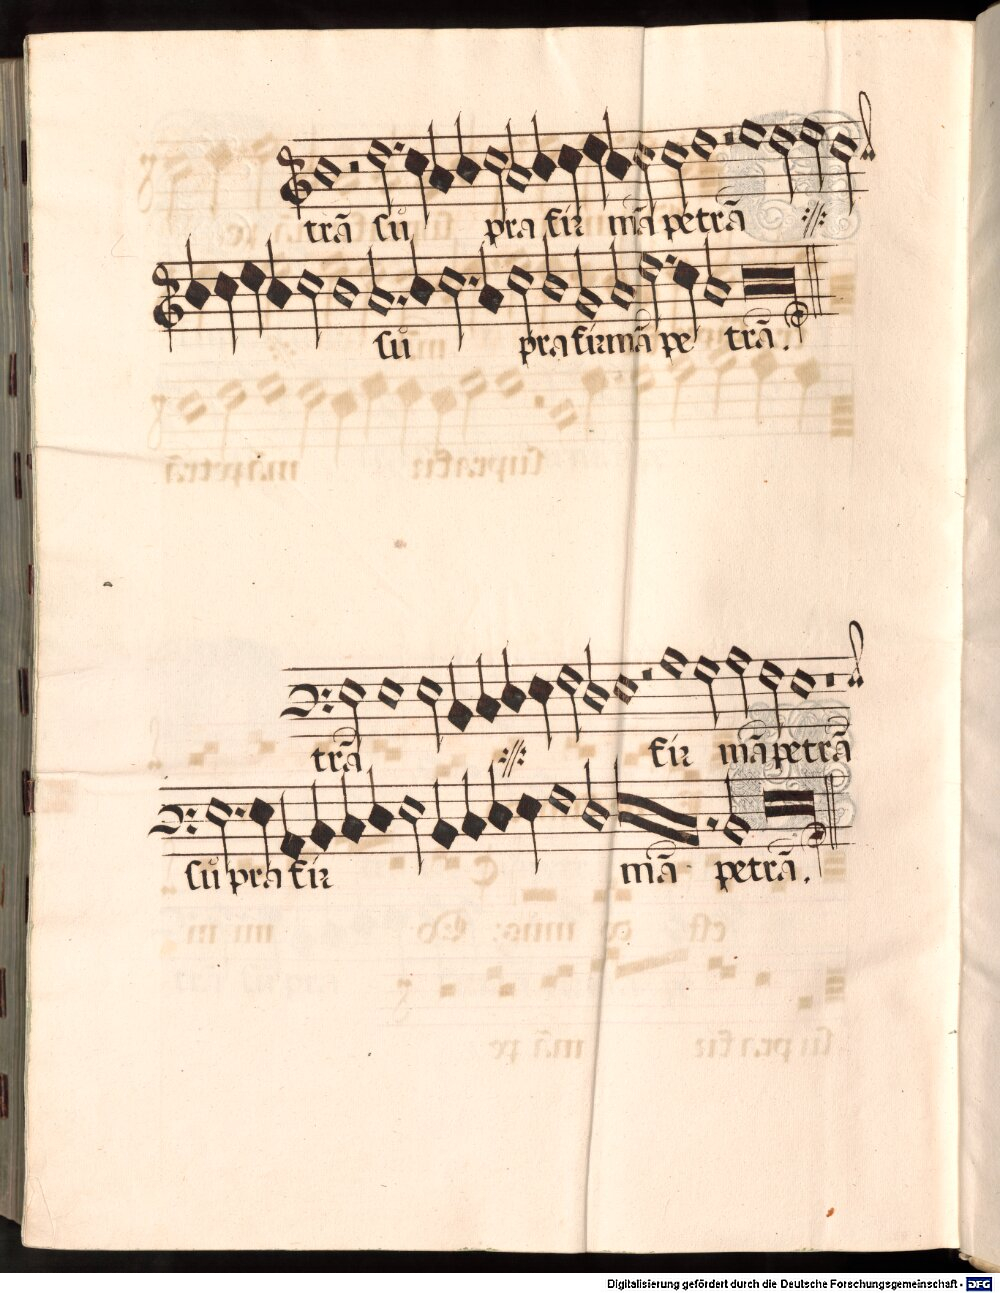 trā sū pra fir mā petrā
sū pra fir mā pe trā.
trā fir mā petrā
sū pra fir mā petrā.
Digitalisierung gefördert durch die Deutsche Forschungsgemeinschaft - DFG